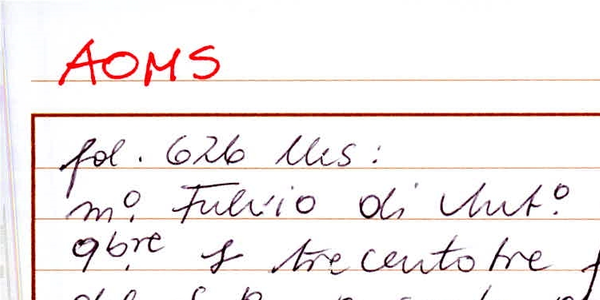 AOMS
fol. 626 Ms:
m.º Fulvio di Ant.º
9bre f trecentotre